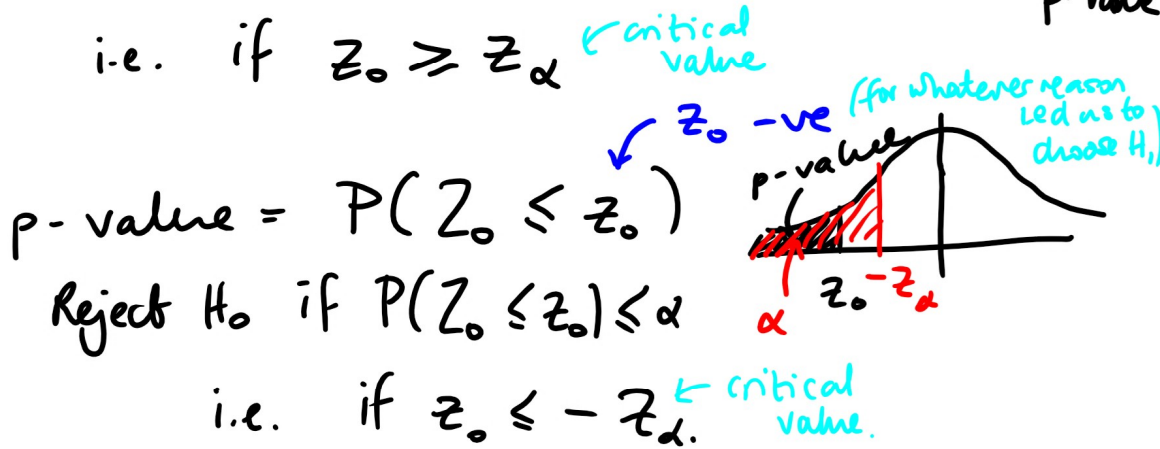 p-value
i.e. if z₀ ≥ z_α ← critical value
z₀ -ve (for whatever reason led us to choose H₁)
p-value
p-value = P(Z₀ ≤ z₀)
z₀ -z_α
α
Reject H₀ if P(Z₀ ≤ z₀) ≤ α
i.e. if z₀ ≤ - z_α. ← critical value.